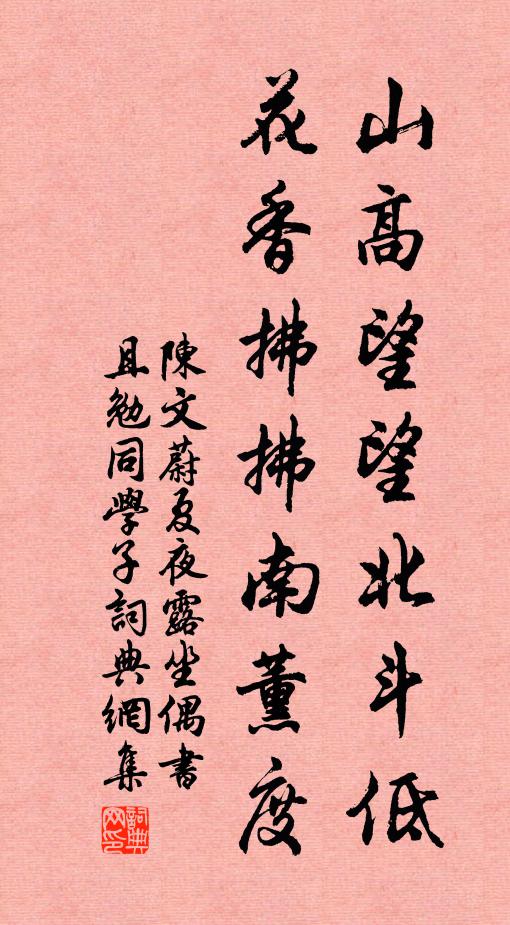 山高望望北斗低
花香拂拂南薰度
陳文蔚夏夜露坐偶書
且勉同學子詞典網集
詞典网印